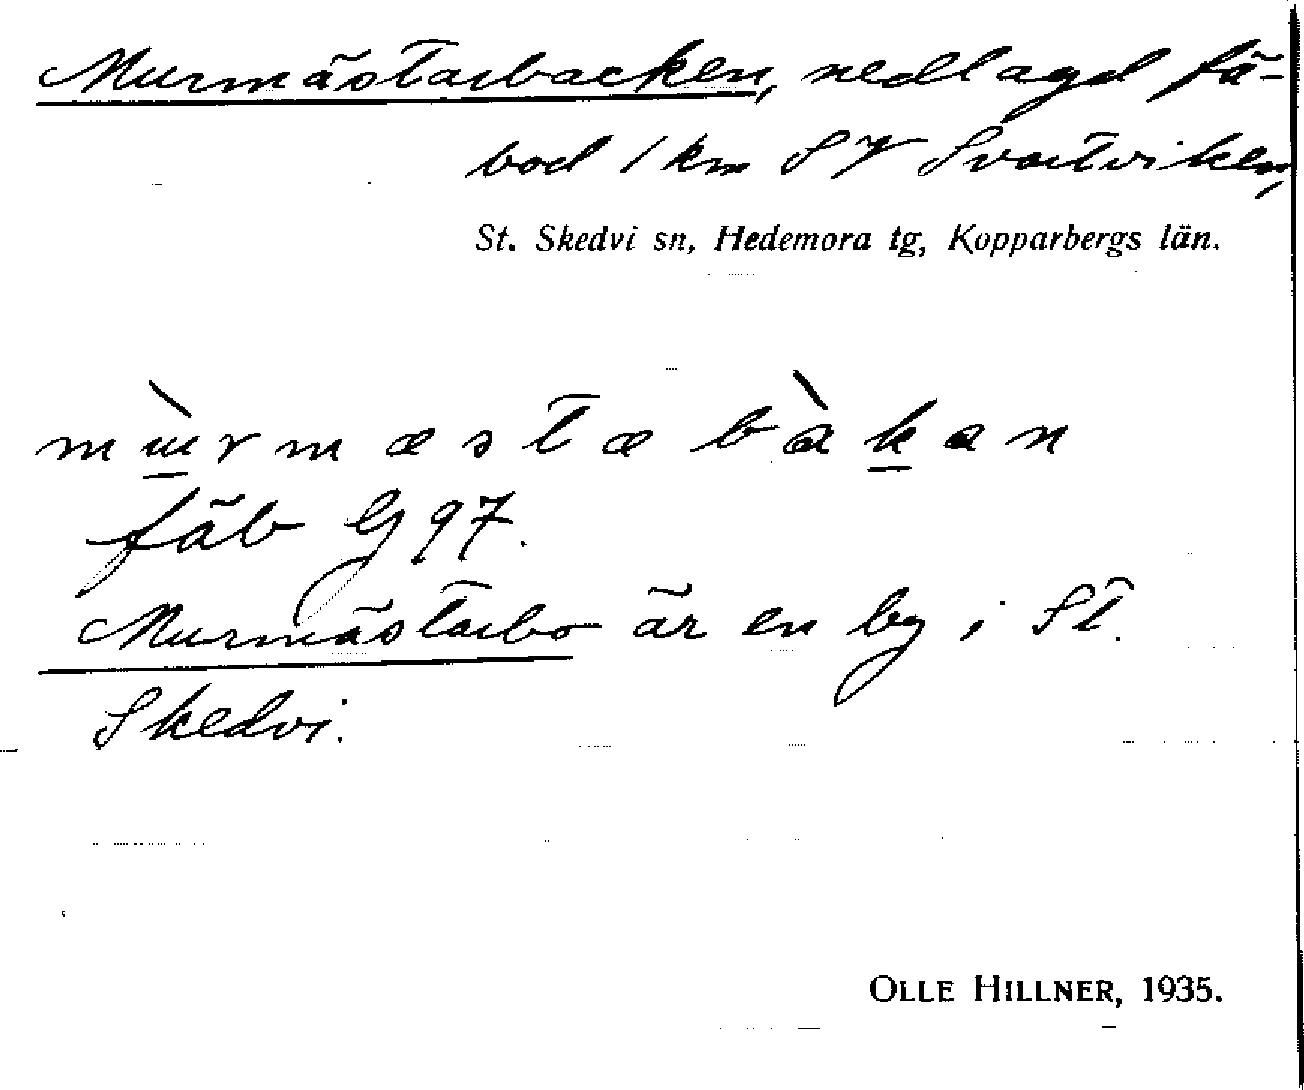 Murmästarbacken, nedlagd fä-
bod 1 km SV Svartviken,
St. Skedvi sn, Hedemora tg, Kopparbergs län.
mùrmæstæbàkan
fäb G 97.
Murmästarbo är en by i St.
Skedvi.
OLLE HILLNER, 1935.